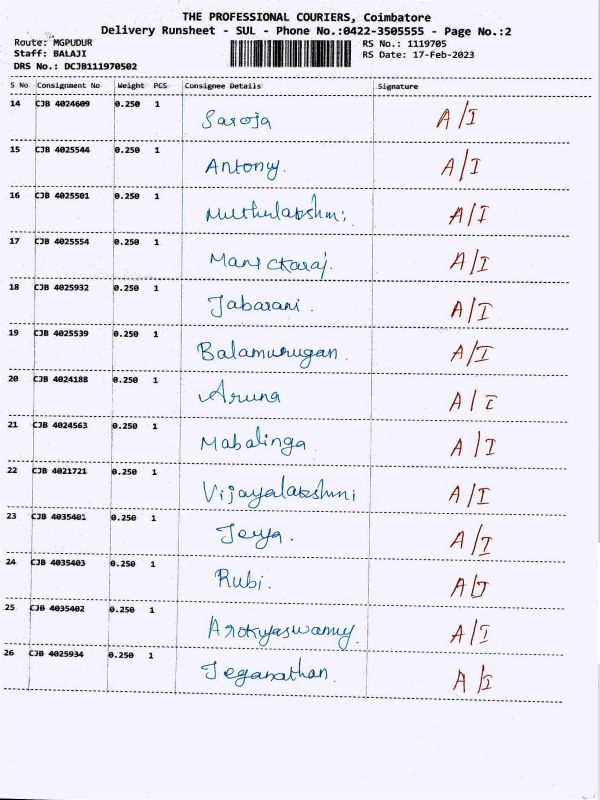 THE PROFESSIONAL COURIERS, Coimbatore
Delivery Runsheet - SUL - Phone No.:0422-3505555 - Page No.:2
Route: MGPUDUR RS No.: 1119705
Staff: BALAJI RS Date: 17-Feb-2023
DRS No.: DCJB111970502
S No Consignment No Weight PCS Consignee Details Signature
14 CJB 4024609 0.250 1 Saroja A/I
15 CJB 4025544 0.250 1 Antony. A/I
16 CJB 4025501 0.250 1 Muthulakshmi. A/I
17 CJB 4025554 0.250 1 Manickaraj. A/I
18 CJB 4025932 0.250 1 Jabarani. A/I
19 CJB 4025539 0.250 1 Balamurugan. A/I
20 CJB 4024188 0.250 1 Aruna A/I
21 CJB 4024563 0.250 1 Mabalinga A/I
22 CJB 4021721 0.250 1 Vijayalakshmi A/I
23 CJB 4035401 0.250 1 Jeya. A/I
24 CJB 4035403 0.250 1 Rubi. A/I
25 CJB 4035402 0.250 1 Arokyaswamy. A/I
26 CJB 4025934 0.250 1 Jeganathan. A/I